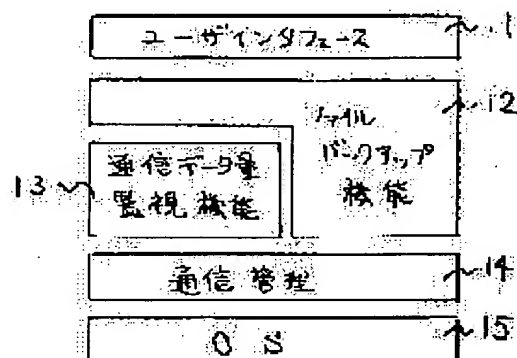 ユーザインタフェース
11
ファイル
12
バックアップ
機能
通信データ量
監視機能
13
通信管理
14
OS
15